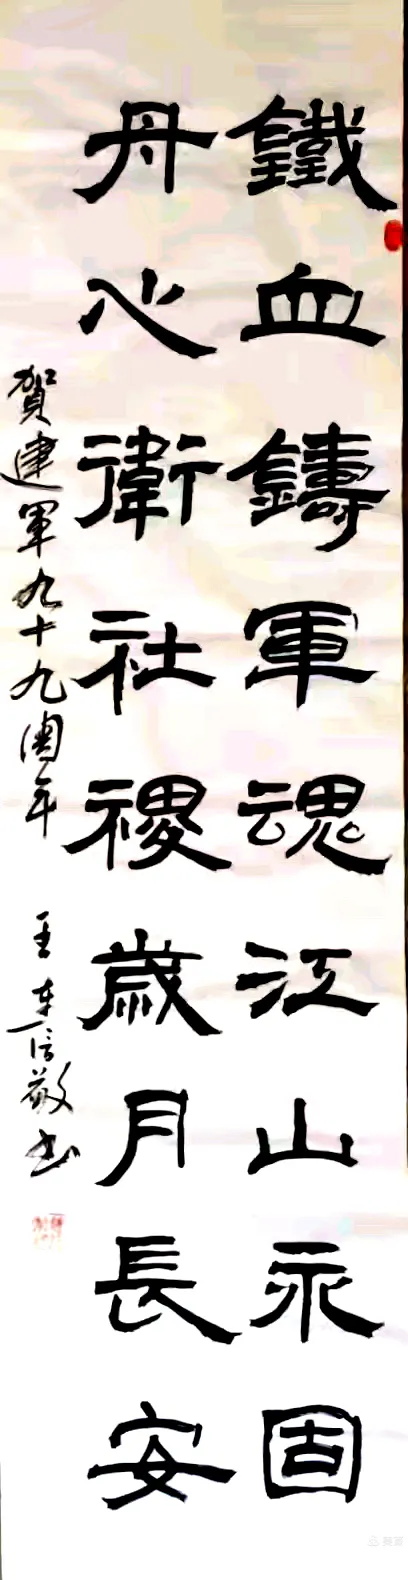 鐵血鑄軍魂江山永固
丹心衛社稷歲月長安
賀建軍九十九周年
王東信敬書